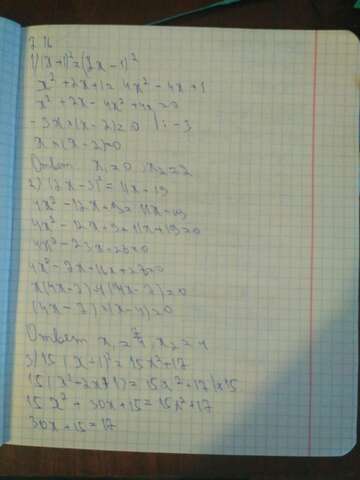 7.16
1) (x+1)² = (2x-1)²
x² + 2x + 1 = 4x² - 4x + 1
x² + 2x - 4x² + 4x = 0
-3x · (x-2) = 0 | : -3
x · (x-2) = 0
Ответ x₁ = 0, x₂ = 2
2) (2x-3)² = 11x - 19
4x² - 12x + 9 = 11x - 19
4x² - 12x + 9 - 11x + 19 = 0
4x² - 23x + 28 = 0
4x² - 7x - 16x + 28 = 0
x(4x-7) - 4(4x-7) = 0
(4x-7) · (x-4) = 0
Ответ x₁ = 7/4, x₂ = 4
15(x²+2x+1) = 15x² + 17
15x² + 30x + 15 = 15x² + 17
30x + 15 = 17